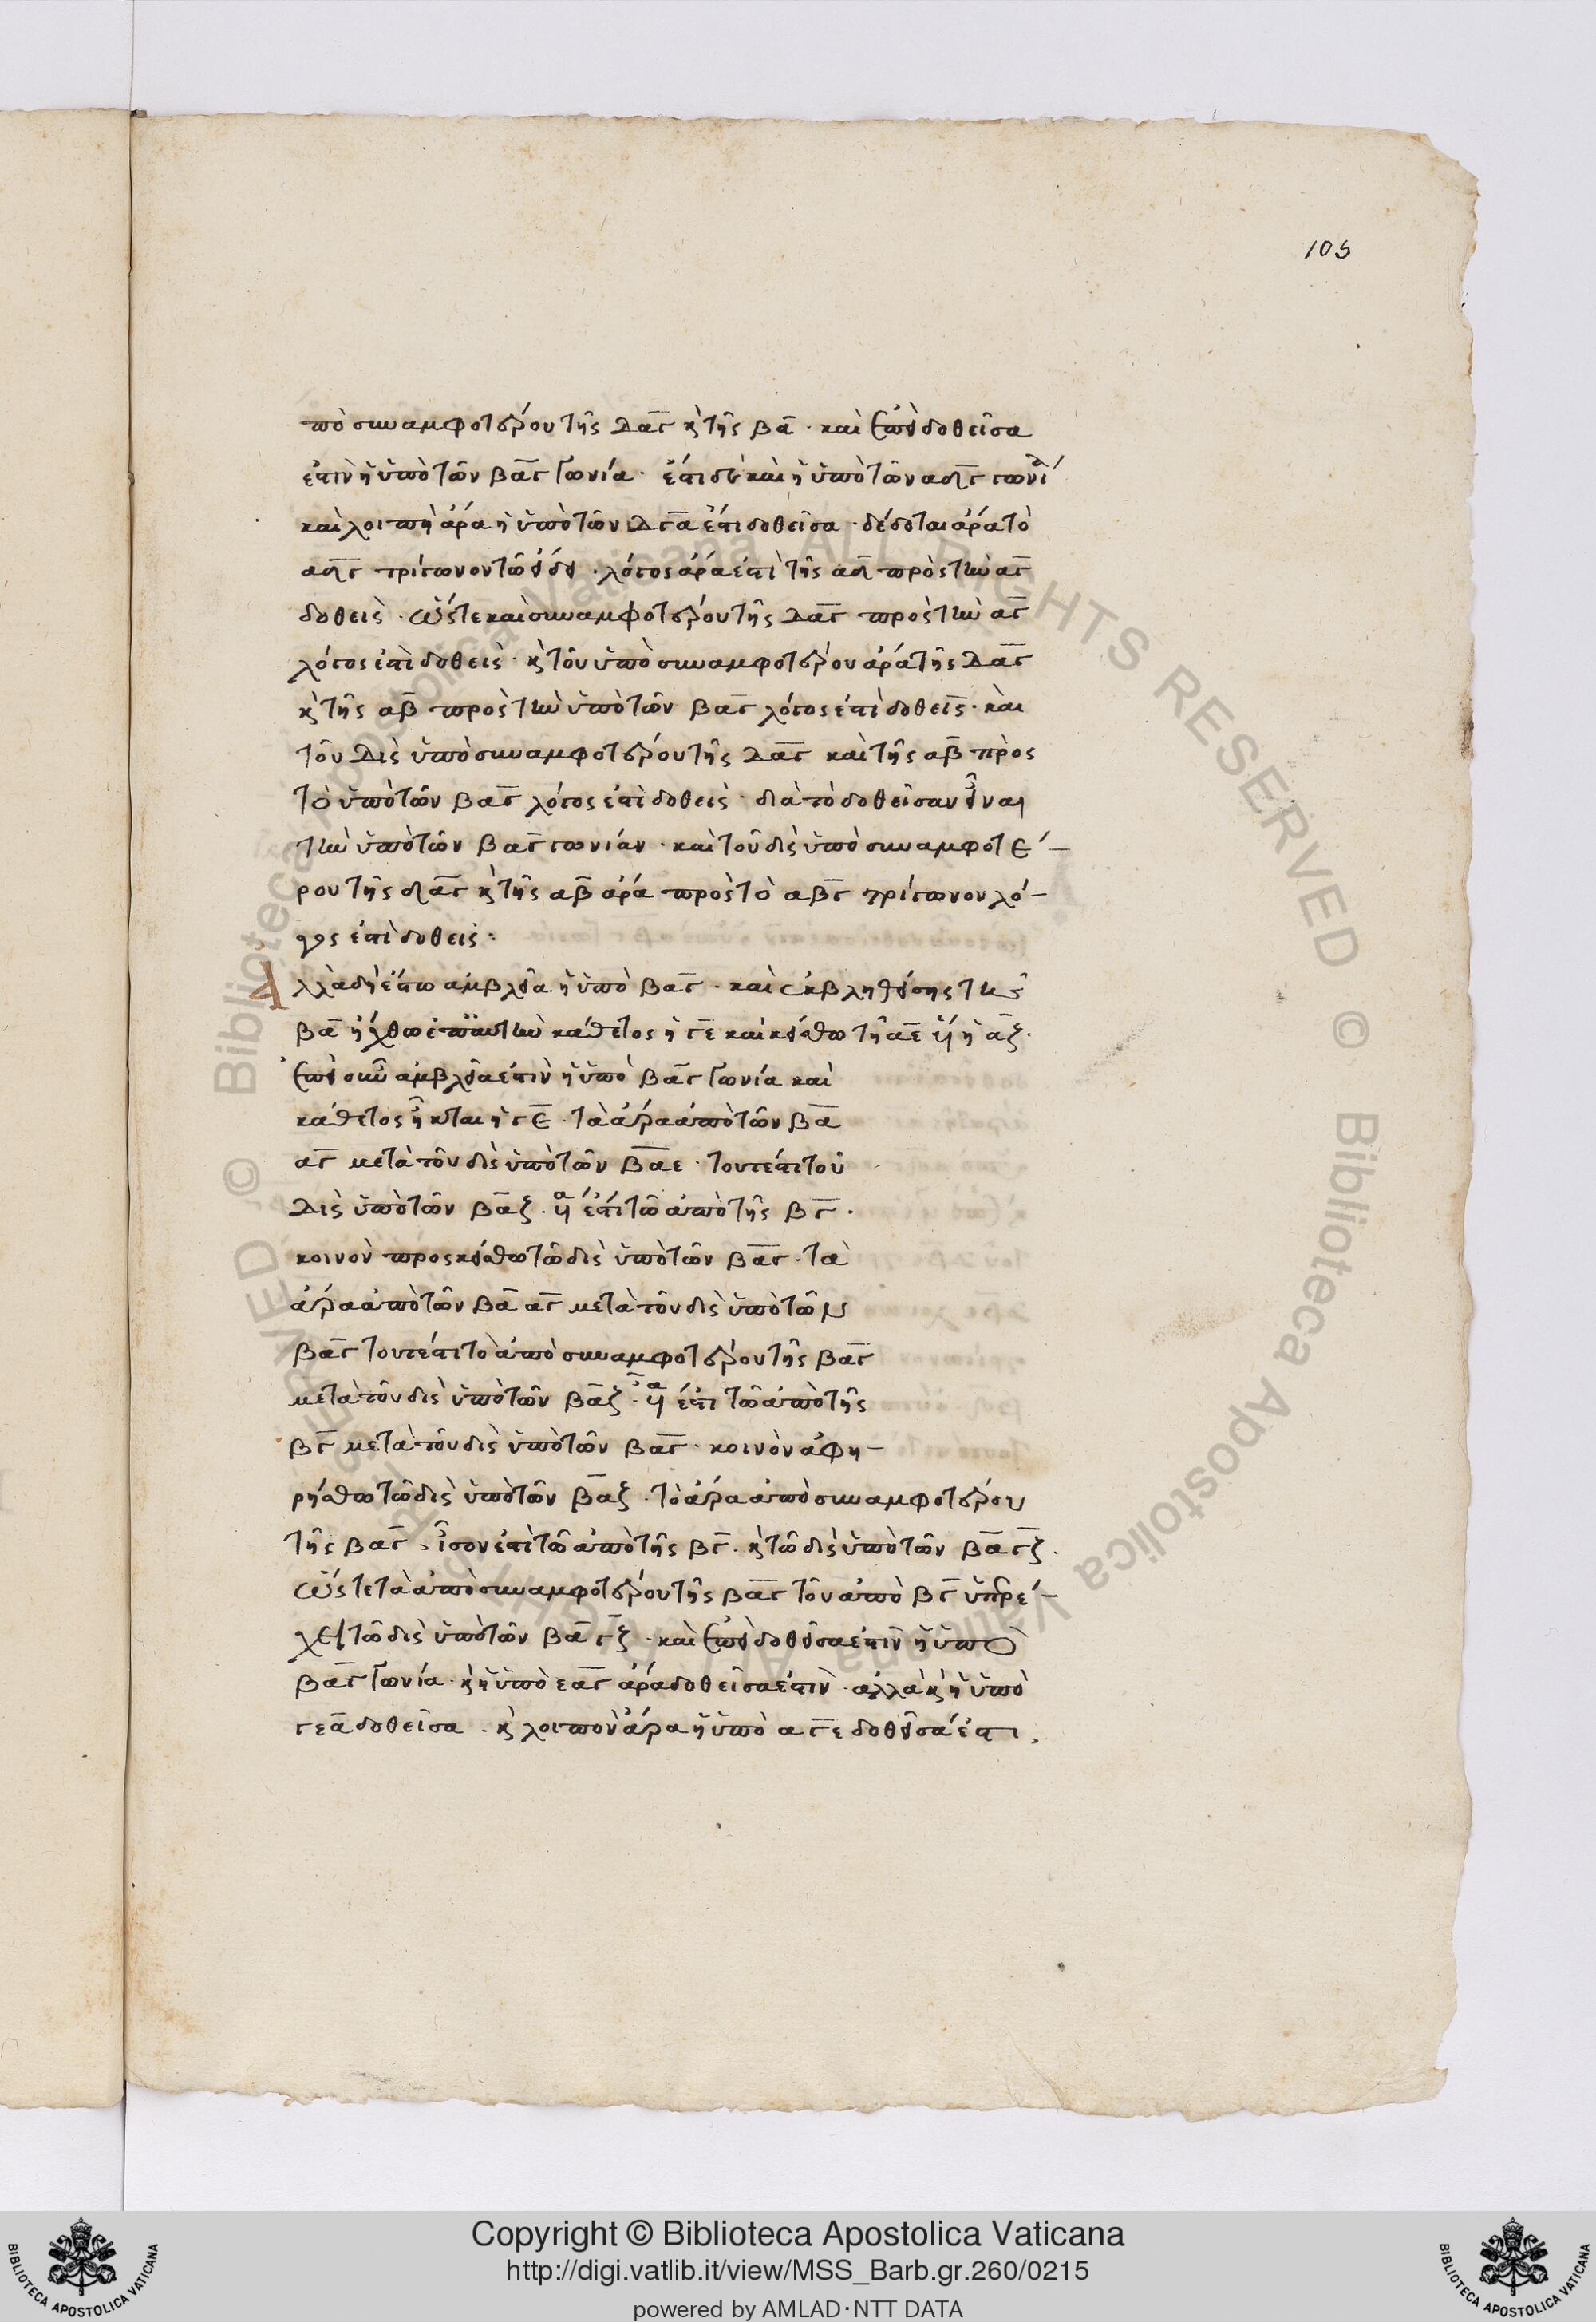 105
πὸ συναμφοτέρου τῆς δαγ κ̀ τῆς βα · καὶ ἐπεὶ δοθεῖσα
ἐστὶν ἡ ὑπὸ τῶν βαγ γωνία · ἔστι δὲ καὶ ἡ ὑπὸ τῶν αδγ γωνί
καὶ λοιπὴ ἄρα ἡ ὑπὸ τῶν δγα ἐστι δοθεῖσα · δέδοται ἄρα τὸ
αδγ τρίγωνον τῶ εἴδει · λόγος ἄρα ἐστὶ τῆς αδ πρὸς τὴν αγ
δοθεὶς · ὥστε καὶ συναμφοτέρου τῆς δαγ πρὸς τὴν αγ
λόγος ἐστὶ δοθεὶς · κ̀ τοῦ ὑπὸ συναμφοτέρου ἄρα τῆς δαγ
κ̀ τῆς αβ πρὸς τὴν ὑπὸ τῶν βαγ λόγος ἐστὶ δοθεὶς · καὶ
τοῦ δὶς ὑπὸ συναμφοτέρου τῆς δαγ καὶ τῆς αβ πρὸς
τὸ ὑπὸ τῶν βαγ λόγος ἐστὶ δοθεὶς · διὰ τὸ δοθεῖσαν εἶναι
τὴν ὑπὸ τῶν βαγ γωνίαν · καὶ τοῦ δὶς ὑπὸ συναμφοτέ-
ρου τῆς δαγ κ̀ τῆς αβ ἄρα πρὸς τὸ αβγ τρίγωνον λό-
γος ἐστὶ δοθείς :
Ἀλλὰ δὴ ἔστω ἀμβλεῖα ἡ ὑπὸ βαγ · καὶ ἐκβληθείσης τῆς
βα ἤχθω ἐπ' αὐτὴν κάθετος ἡ γε καὶ κείσθω τῆ αε ἴση ἡ αζ ·
ἐπεὶ οὖν ἀμβλεῖα ἐστὶν ἡ ὑπὸ βαγ γωνία καὶ
κάθετος ἦκται ἡ γε · τὰ ἄρα ἀπὸ τῶν βα
αγ μετὰ τοῦ δὶς ὑπὸ τῶν βαε · τουτέστι τοῦ
δὶς ὑπὸ τῶν βαζ · ἴσα ἐστὶ τῶ ἀπὸ τῆς βγ ·
κοινὸν προσκείσθω τῶ δὶς ὑπὸ τῶν βαγ · τὰ
ἄρα ἀπὸ τῶν βα αγ μετὰ τοῦ δὶς ὑπὸ τῶν
βαγ τουτέστι τὸ ἀπὸ συναμφοτέρου τῆς βαγ
μετὰ τοῦ δὶς ὑπὸ τῶν βαζ · ἴσα ἐστὶ τῶ ἀπὸ τῆς
βγ μετὰ τοῦ δὶς ὑπὸ τῶν βαγ · κοινὸν ἀφη-
ρήσθω τῶ δὶς ὑπὸ τῶν βαζ · τὸ ἄρα ἀπὸ συναμφοτέρου
τῆς βαγ , ἴσον ἐστὶ τῶ ἀπὸ τῆς βγ · κ̀ τῶ δὶς ὑπὸ τῶν βα γζ ·
ὥστε τὰ ἀπὸ συναμφοτέρου τῆς βαγ τοῦ ἀπὸ βγ ὑπερέ-
χει τῶ δὶς ὑπὸ τῶν βα γζ · καὶ ἐπεὶ δοθεῖσα ἐστὶν ἡ ὑπὸ
βαγ γωνία · κ̀ ἡ ὑπὸ εαγ ἄρα δοθεῖσα ἐστὶν · ἀλλὰ κ̀ ἡ ὑπὸ
γεα δοθεῖσα · κ̀ λοιπὸν ἄρα ἡ ὑπὸ αγε δοθεῖσά ἐστι ,
Copyright © Biblioteca Apostolica Vaticana
http://digi.vatlib.it/view/MSS_Barb.gr.260/0215
powered by AMLAD·NTT DATA